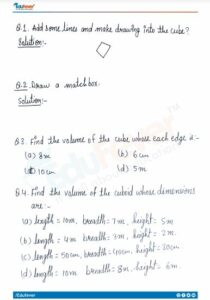 Eduhever
Q.1. Add some lines and make drawing into the cube?
Solution:-
Q.2. Draw a matchbox.
Solution:-
Q.3. Find the volume of the cube whose each edge is:-
(a) 8m (b) 6cm
(c) 10cm (d) 5m
Q.4. Find the volume of the cuboid whose dimensions
are :-
(a) length = 10m, breadth = 7m, height = 5m
(b) length = 4m breadth = 3m, height = 2m.
(c) length = 50cm, breadth = 40cm, height = 30cm
(d) length = 10m breadth = 8m, height = 6m.